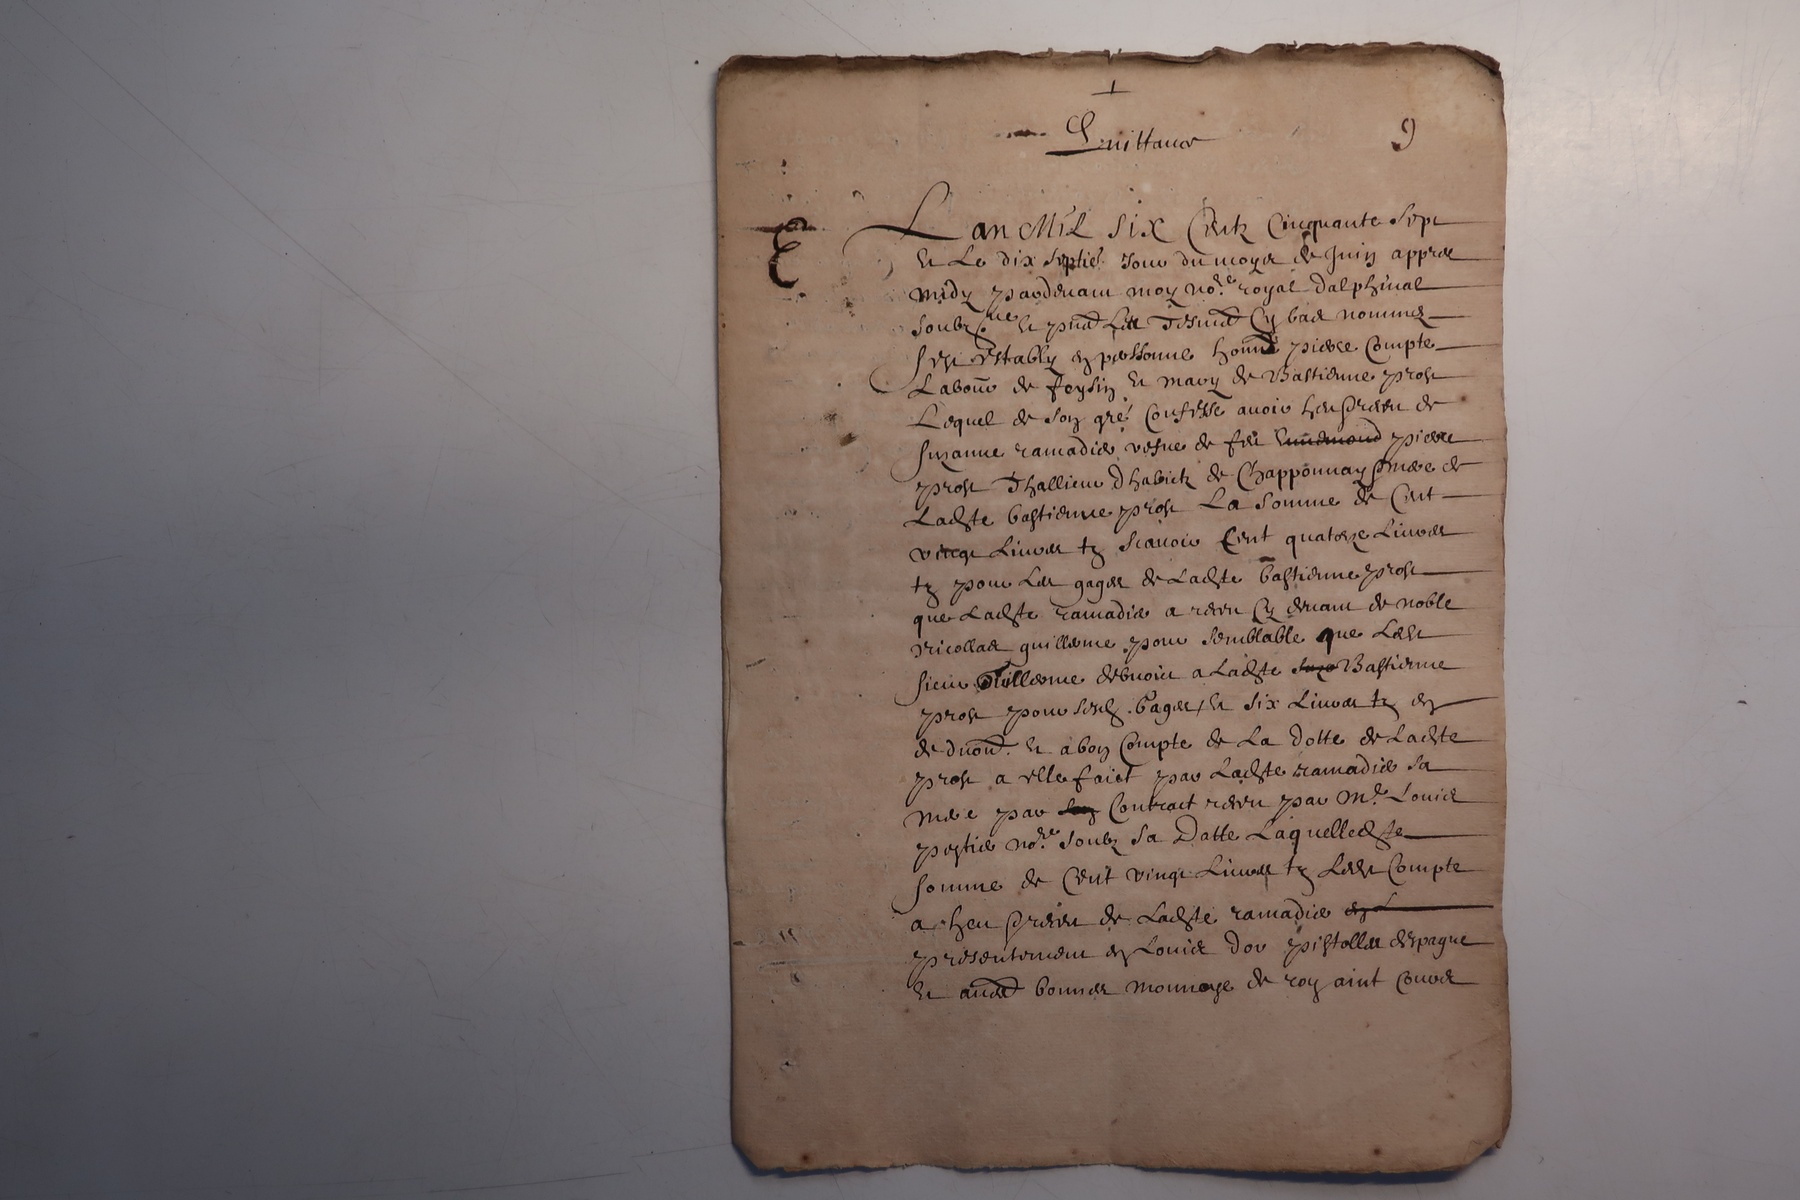 Quittance
9
Lan Mil six Centz Cinquante sept
et Le dix septie. Jour du moys de Juin appres
midy pardevant moy no.re royal dalphinal
soubz.ne et pntz Les Tesmd Cy bas nommez
sest Estably en personne honn pierre Compte
Labour de feysin et mary de Bastienne prost
Lequel de son gre. Confesse avoir heu & receu de
suzanne ramadie vefve de feu Ennemond pierre
prost Thallieur dhabitz de Chapponnay & mere de
Ladte bastienne prost La somme de Cent
vingt Livres tz scavoir Cent quatorze Livres
tz pour Les gages de Ladte bastienne prost
que Ladte ramadie a receu Cy devant de noble
nicollas guillerme pour semblable que Ledt
sieur Guillerme debvoit a Ladte Suze Bastienne
prost pour sesd. Gages, et six Livres tz en
deduon. et a bon Compte de La dotte de Ladte
prost a elle faict par Ladte ramadie sa
mere par Contract receu par M.e Louis
no.re soubz sa Datte Laquelledte
somme de Cent vingt Livres tz Ledt Compte
a heu & receu de Ladte ramadie en L
presentement en Louis dor pistolles despagne
et aues bonnes monnoye de roy aint Cours